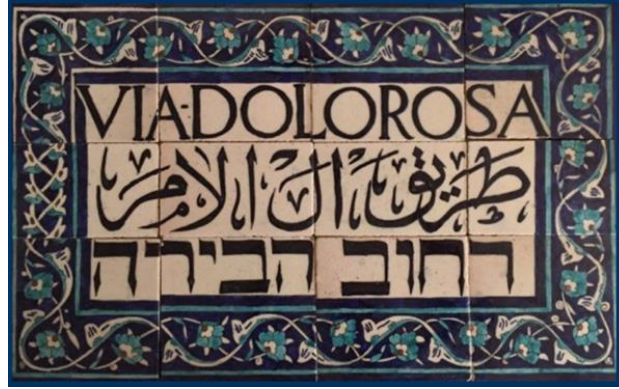 VIA-DOLOROSA
طريق الالام
רחוב הבירה